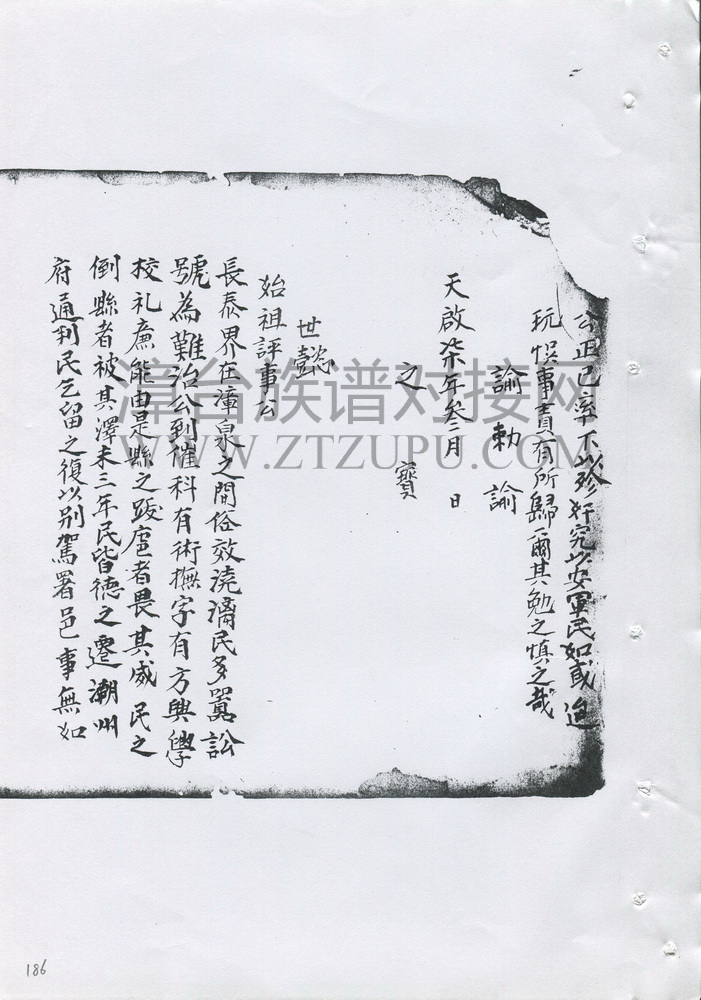 公正己率下以殄奸宄以安軍民如或迨
玩悞事責有所歸爾其勉之慎之哉
諭勅諭
天啟柒年叁三月 日
之寶
世懿
始祖評事公
長泰界在漳泉之間俗效澆漓民多嚣訟
號為難治公到催科有術撫字有方興學
校礼廉能由是縣之跋扈者畏其威民之
倒縣者被其澤未三年民皆德之遷潮州
府通判民乞留之復以别駕署邑事無如
漳台族谱对接网
WWW.ZTZUPU.COM
186